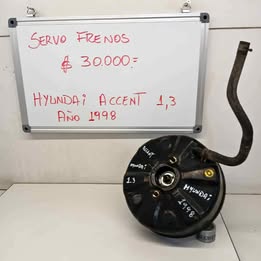 SERVO FRENOS
$ 30.000.=
HYUNDAI ACCENT 1,3
AÑO 1998
ACCENT
HYUNDAI
1.3
HYUNDAI
1998